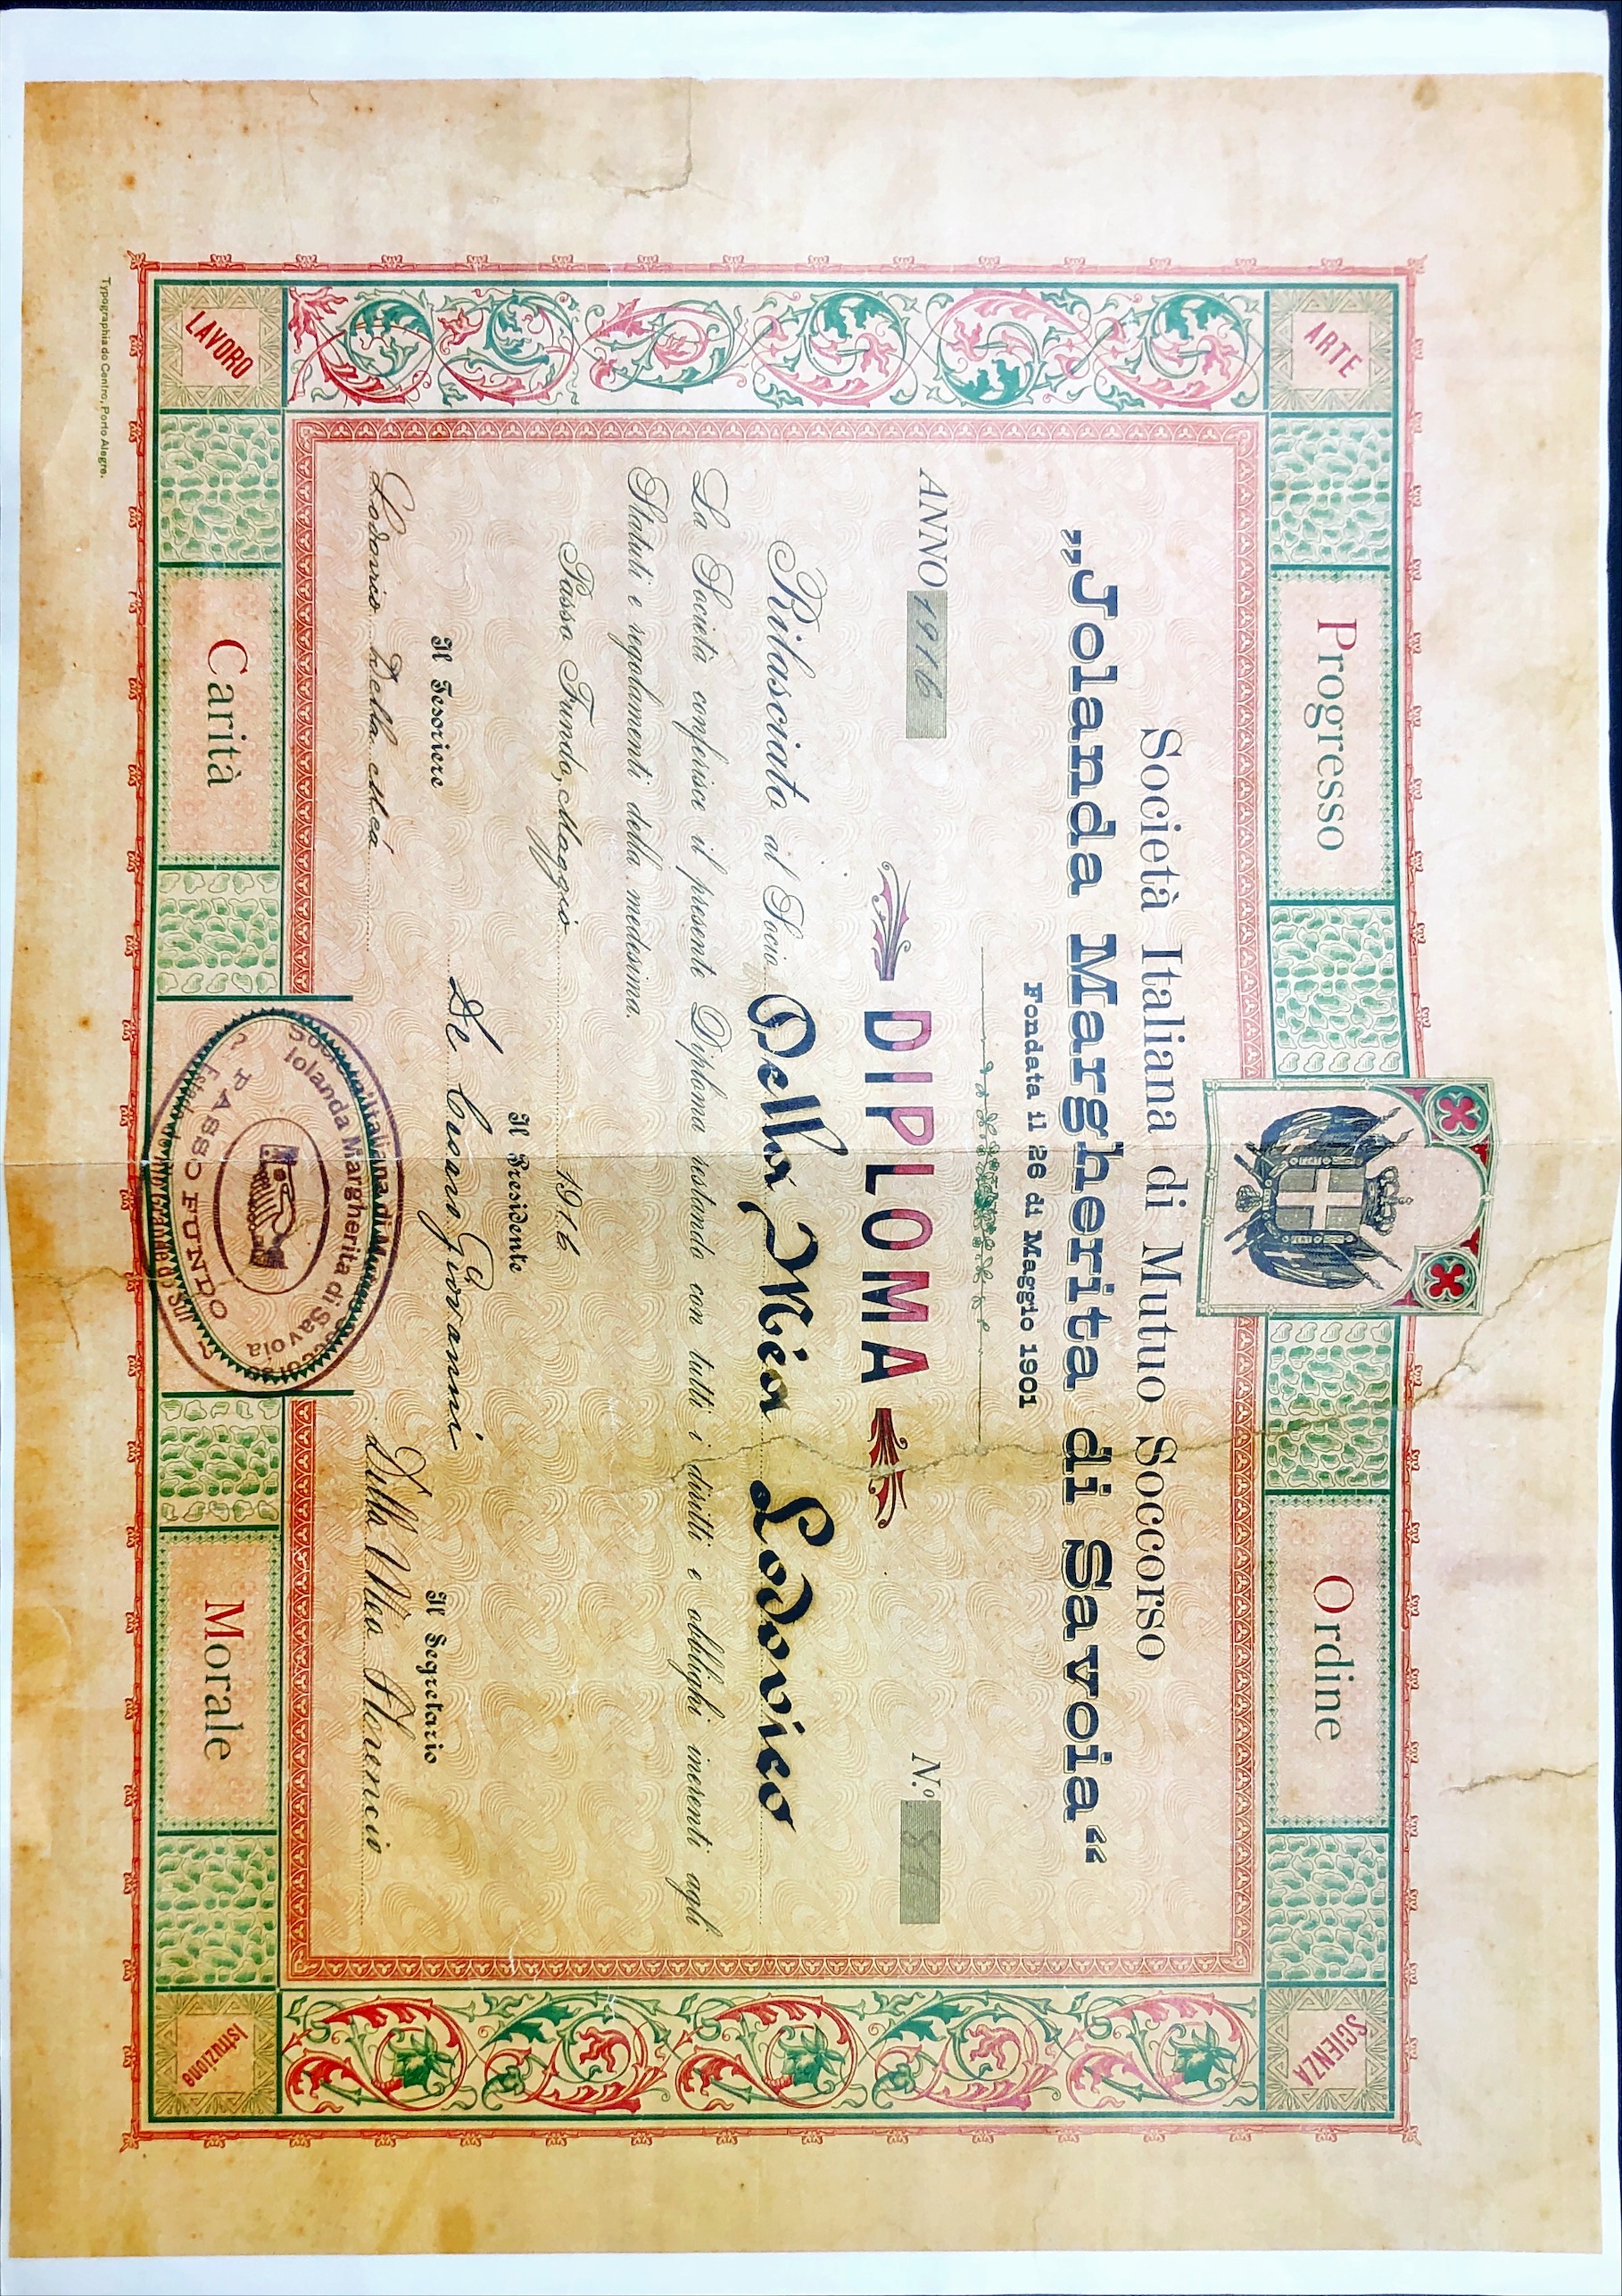 ARTE
Progresso
Ordine
SCIENZA
Società Italiana di Mutuo Soccorso
„Jolanda Margherita di Savoia“
Fondata il 26 di Maggio 1901
ANNO 1916
DIPLOMA
N.º 81
Rilasciato al Socio Della Méa Lodovico
La Società conferisce il presente Diploma restando con tutti i diritti e obblighi inerenti agli
Statuti e regolamenti della medesima.
Passo Fundo, Maggio 1916
Il Presidente
De Cesaro Giovanni
Il Tesoriere
Lodovico Della Méa
Il Segretario
Della Méa Florencio
Società Italiana di Mutuo Soccorso
Iolanda Margherita di Savoia
PASSO FUNDO
Estado do Rio Grande do Sul
LAVORO
Carità
Morale
Istruzione
Typographia do Centro, Porto Alegre.